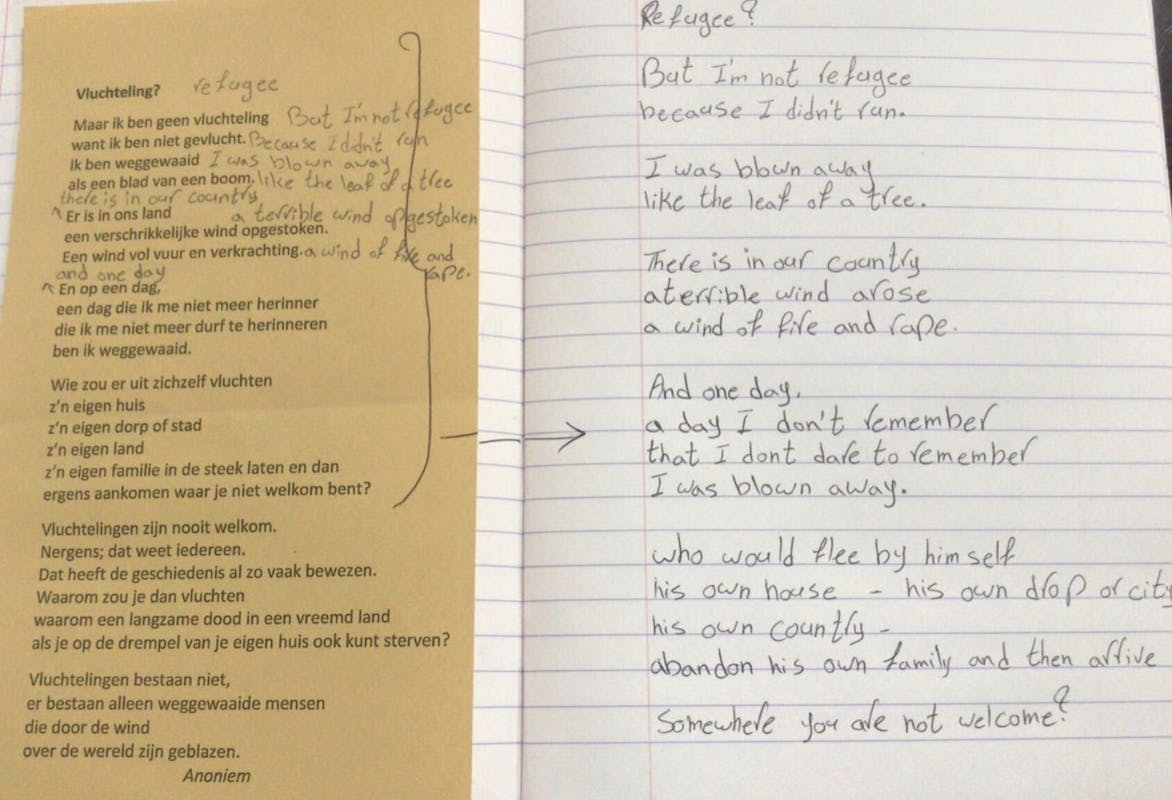 Vluchteling? refugee
Maar ik ben geen vluchteling But I'm not refugee
want ik ben niet gevlucht. Because I didn't run
Ik ben weggewaaid I was blown away
als een blad van een boom. like the leaf of a tree
there is in our country
Er is in ons land a terrible wind opgestoken
een verschrikkelijke wind opgestoken.
Een wind vol vuur en verkrachting. a wind of fire and
rape.
and one day
En op een dag,
een dag die ik me niet meer herinner
die ik me niet meer durf te herinneren
ben ik weggewaaid.
Wie zou er uit zichzelf vluchten
z'n eigen huis
z'n eigen dorp of stad
z'n eigen land
z'n eigen familie in de steek laten en dan
ergens aankomen waar je niet welkom bent?
Vluchtelingen zijn nooit welkom.
Nergens; dat weet iedereen.
Dat heeft de geschiedenis al zo vaak bewezen.
Waarom zou je dan vluchten
waarom een langzame dood in een vreemd land
als je op de drempel van je eigen huis ook kunt sterven?
Vluchtelingen bestaan niet,
er bestaan alleen weggewaaide mensen
die door de wind
over de wereld zijn geblazen.
Anoniem
Refugee?
But I'm not refugee
because I didn't run.
I was blown away
like the leaf of a tree.
There is in our country
a terrible wind arose
a wind of fire and rape.
And one day,
a day I don't remember
that I dont dare to remember
I was blown away.
who would flee by himself
his own house - his own drop or city
his own country -
abandon his own family and then arrive
Somewhere you are not welcome?